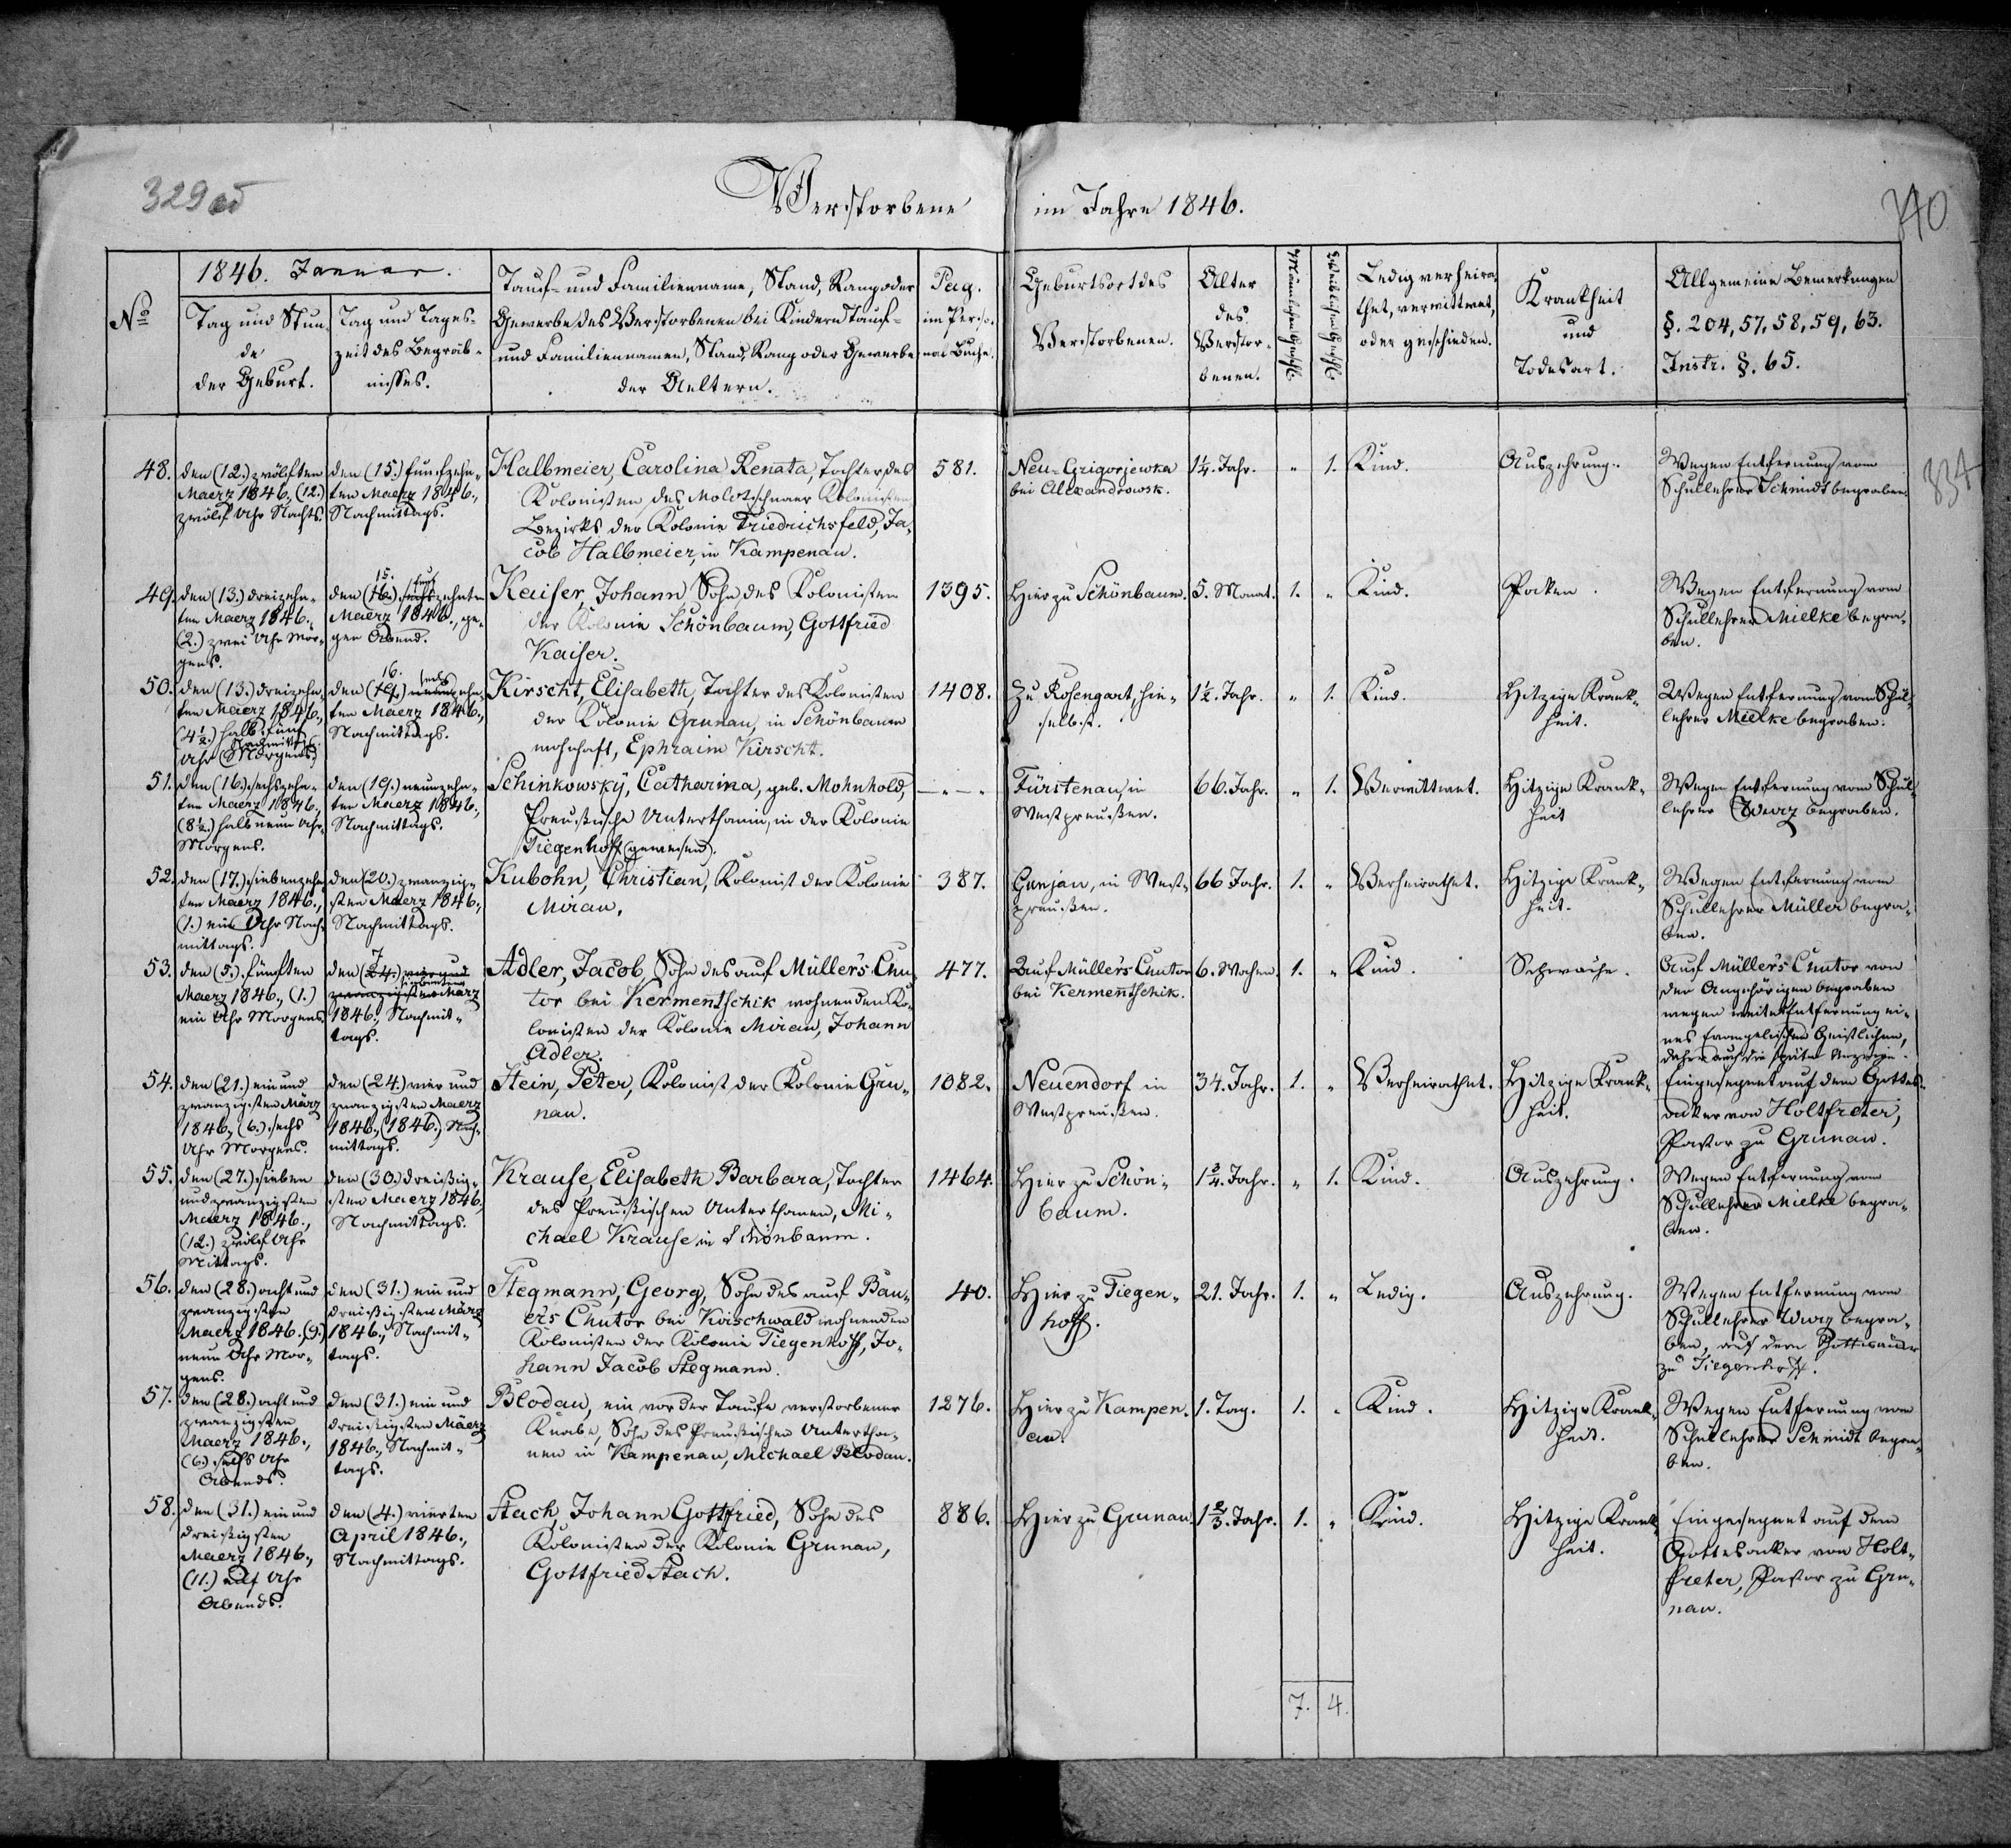 329 340
Verstorbene im Jahre 1846.
834
No
1846. Januar.
Tag und Stun-
de
der Geburt.
Tag und Tages-
zeit des Begräb-
nisses.
Tauf- und Familienname, Stand, Rang oder
Gewerbe des Verstorbenen bei Kindern Tauf-
und Familiennamen, Stand, Rang oder Gewerbe
der Aeltern.
Pag.
im Perso-
nal Buche.
Geburtsort des
Verstorbenen.
Alter
des
Verstor-
benen.
Männlichen Geschl.
Weiblichen Geschl.
Ledig verheira-
thet, verwittwet,
oder geschieden.
Krankheit
und
Todesart.
Allgemeine Bemerkungen
§. 204, 57, 58, 59, 63.
Instr. §. 65.
48.
den (12.) zwölften
Maerz 1846., (12.)
zwölf Uhr Nachts.
den (15.) funfzehn-
ten Maerz 1846.,
Nachmittags.
Halbmeier, Carolina Renata, Tochter des
Kolonisten des Molotschnaer Kolonisten
Bezirks der Kolonie Friedrichsfeld, Ja-
cob Halbmeier, in Kampenau.
581.
Neu-Grigorjewka
bei Alexandrowsk.
1¼. Jahr.
" 1.
Kind.
Auszehrung.
Wegen Entfernung vom
Schullehrer Schmidt begraben.
49.
den (13.) dreizehn-
ten Maerz 1846.,
(2.) zwei Uhr Mor-
gens.
15. funf
den (16.) sechszehnten
Maerz 1846., ge-
gen Abend.
Kaiser, Johann Sohn des Kolonisten
der Kolonie Schönbaum, Gottfried
Kaiser.
1395.
Hier zu Schönbaum.
5. Monat.
1. "
Kind.
Pocken.
Wegen Entfernung vom
Schullehrer Mielke begra-
ben.
50.
den (13.) dreizehn-
ten Maerz 1846.,
(4½.) halb fünf
Nachmittags
Uhr (Morgens.)
16. sechs
den (19.) neunzehn-
ten Maerz 1846.,
Nachmittags.
Kirscht, Elisabeth, Tochter des Kolonisten
der Kolonie Grunau, in Schönbaum
wohnhaft, Ephraim Kirscht.
1408.
Zu Rosengart, hie-
selbst.
1½. Jahr.
" 1.
Kind.
Hitzige Krank-
heit.
Wegen Entfernung vom Schul-
lehrer Mielke begraben.
51.
den (16.) sechszehn-
ten Maerz 1846.,
(8½.) halb neun Uhr
Morgens.
den (19.) neunzehn-
ten Maerz 1846.,
Nachmittags.
Schinkowsky, Catharina, geb. Mohnhold,
Preußische Unterthanin, in der Kolonie
Tiegenhoff (gewesen).
— " — "
Fürstenau, in
Westpreußen.
66. Jahr.
" 1.
Verwittwet.
Hitzige Krank-
heit
Wegen Entfernung vom Schul-
lehrer Wurz begraben.
52.
den (17.) siebenzehn-
ten Maerz 1846.,
(1.) ein Uhr Nach-
mittags.
den (20.) zwanzig-
sten Maerz 1846.,
Nachmittags.
Kubohn, Christian, Kolonist der Kolonie
Mirau.
387.
Gunjau, in West-
preußen.
66 Jahr.
1. "
Verheirathet.
Hitzige Krank-
heit.
Wegen Entfernung vom
Schullehrer Müller begra-
ben.
53.
den (5.) fünften
Maerz 1846., (1.)
ein Uhr Morgens.
7
den (24.) vier und
siebenten
zwanzigsten März
1846., Nachmit-
tags.
Adler, Jacob, Sohn des auf Müller's Chu-
tor bei Kermentschik wohnenden Ko-
lonisten der Kolonie Mirau, Johann
Adler.
477.
Auf Müller's Chutor
bei Kermentschik.
6. Wochen.
1. "
Kind.
Schwäche.
Auf Müller's Chutor von
den Angehörigen begraben
wegen weiter Entfernung ei-
nes Evangelischen Geistlichen,
daher auch die späte Anzeige.
54.
den (21.) ein und
zwanzigsten März
1846., (6.) sechs
Uhr Morgens.
den (24.) vier und
zwanzigsten Maerz
1846., (1846.), Nach-
mittags.
Stein, Peter, Kolonist der Kolonie Gru-
nau.
1082.
Neuendorf in
Westpreußen.
34. Jahr.
1. "
Verheirathet.
Hitzige Krank-
heit.
Eingesegnet auf dem Gottes-
acker von Holtfreter,
Pastor zu Grunau.
55.
den (27.) sieben
und zwanzigsten
Maerz 1846.,
(12.) zwölf Uhr
Mittags.
den (30.) dreißig-
sten Maerz 1846.,
Nachmittags.
Krause, Elisabeth Barbara, Tochter
des Preußischen Unterthanen, Mi-
chael Krause in Schönbaum.
1464.
Hier zu Schön-
baum.
1¾. Jahr.
" 1.
Kind.
Auszehrung.
Wegen Entfernung vom
Schullehrer Mielke begra-
ben.
56.
den (28.) acht und
zwanzigsten
Maerz 1846., (9.)
neun Uhr Mor-
gens.
den (31.) ein und
dreißigsten März
1846., Nachmit-
tags.
Stegmann, Georg, Sohn des auf Bau-
er's Chutor bei Kaischwald wohnenden
Kolonisten der Kolonie Tiegenhoff, Jo-
hann Jacob Stegmann.
40.
Hier zu Tiegen-
hoff.
21. Jahr.
1. "
Ledig.
Auszehrung.
Wegen Entfernung vom
Schullehrer Wurz begra-
ben, auf dem Gottesacker
zu Tiegenhoff.
57.
den (28.) acht und
zwanzigsten
Maerz 1846.,
(6.) sechs Uhr
Abends.
den (31.) ein und
dreißigsten Maerz
1846., Nachmit-
tags.
Blodau, ein vor der Taufe verstorbener
Knabe, Sohn des Preußischen Untertha-
nen in Kampenau, Michael Blodau.
1276.
Hier zu Kampen-
au.
1. Tag.
1. "
Kind.
Hitzige Krank-
heit.
Wegen Entfernung vom
Schullehrer Schmidt begra-
ben.
58.
den (31.) ein und
dreißigsten
Maerz 1846.,
(11.) elf Uhr
Abends.
den (4.) vierten
April 1846.,
Nachmittags.
Stach, Johann Gottfried, Sohn des
Kolonisten der Kolonie Grunau,
Gottfried Stach.
886.
Hier zu Grunau.
1⅔. Jahr.
1. "
Kind.
Hitzige Krank-
heit.
Eingesegnet auf dem
Gottesacker von Holt-
freter, Pastor zu Gru-
nau.
7. 4.